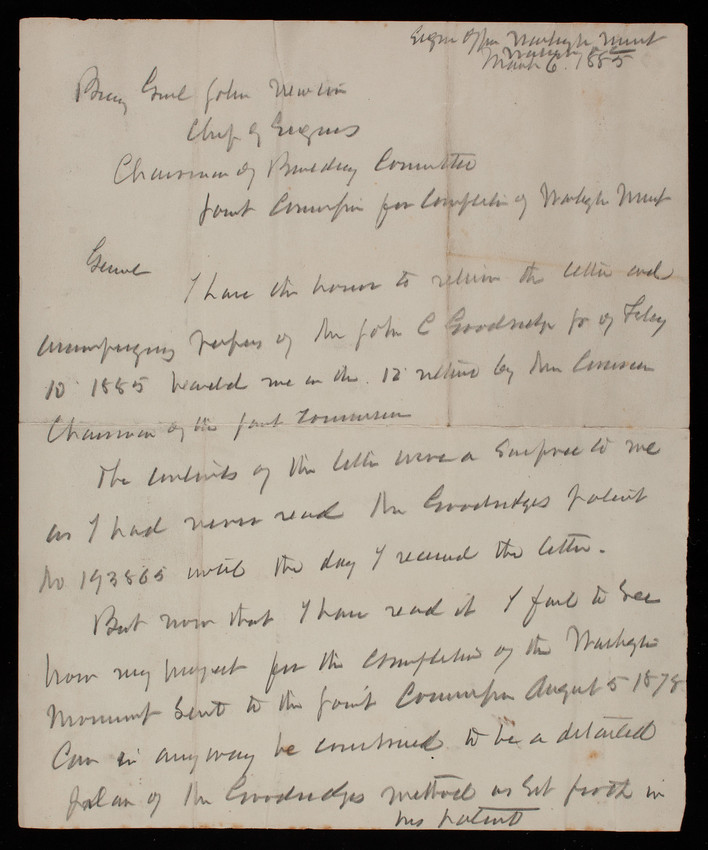 Engr Office Washgtn Mnmt
March 6. 1885
Brig Genl John Newton
Chief of Engineers
Chairman of Committee
Joint Commission for Completion of Washgtn Mnmt
Genrl
I have the honor to return the letter and
accompanying papers of Mr John C Goodridge Jr of Feby
10 1885 handed me on the 12 by Mr Corcoran
Chairman of the Joint Commission
The contents of the letter were a surprise to me
as I had never read Mr Goodridges patent
No 193865 until the day I received the letter.
But now that I have read it I fail to see
how my project for the completion of the Washgtn
Monument sent to the Joint Commission August 5 1878
Can in anyway be construed to be a detailed
plan of Mr Goodridges method as set forth in
his patent